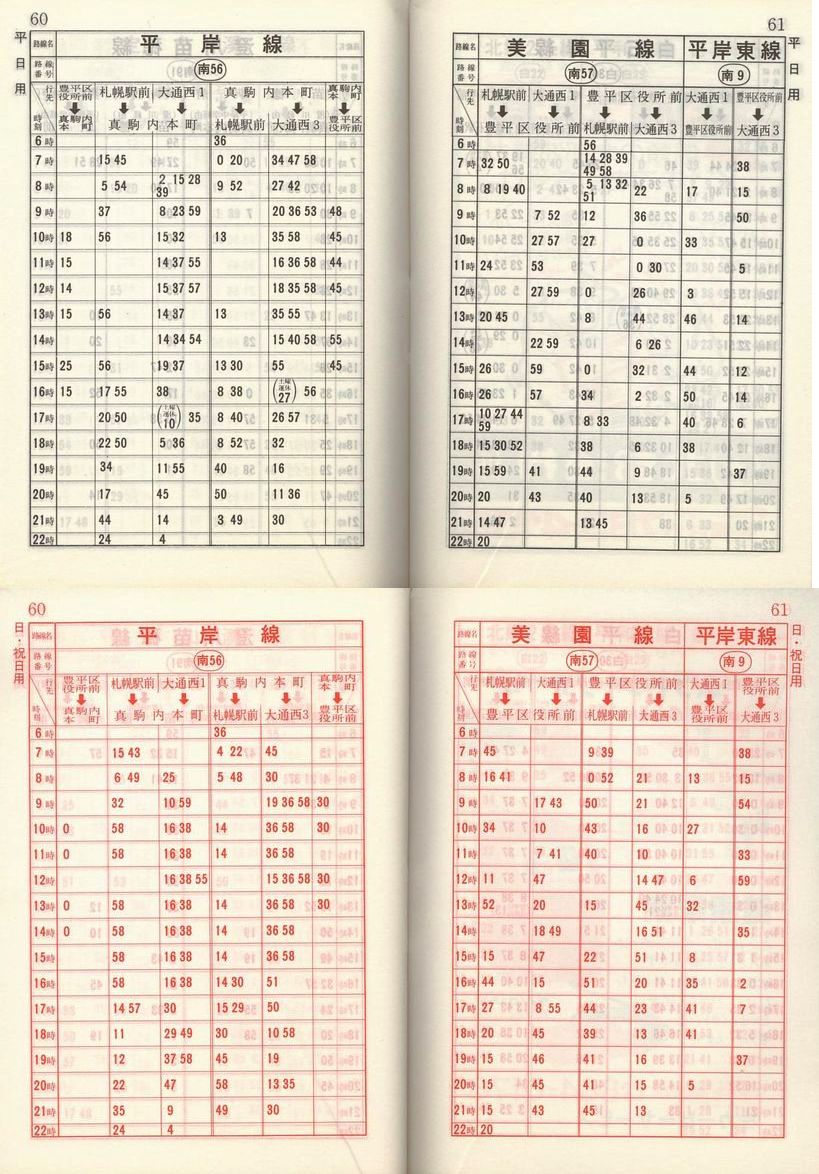 60
平日用
路線名 平岸線
路線番号 南56
行先 時刻 豊平区役所前 真駒内本町 札幌駅前 大通西1 真駒内本町 真駒内本町 札幌駅前 大通西3 真駒内本町 豊平区役所前
6時 36
7時 15 45 0 20 34 47 58
8時 5 54 2 15 28 39 9 52 27 42
9時 37 8 23 59 20 36 53 48
10時 18 56 15 32 13 35 58 45
11時 15 14 37 55 16 36 58 44
12時 14 15 37 57 18 35 58 45
13時 15 56 14 37 13 35 55
14時 14 34 54 15 40 58 55
15時 25 56 19 37 13 30 55 45
16時 15 17 55 38 8 38 (土曜運休27) 56
17時 20 50 (土曜運休10) 35 8 40 26 57
18時 22 50 5 36 8 52 32
19時 34 11 55 40 16
20時 17 45 50 11 36
21時 44 14 3 49 30
22時 24 4
61
平日用
路線名 美園平線 平岸東線
路線番号 南57 南9
行先 時刻 札幌駅前 大通西1 豊平区役所前 豊平区役所前 札幌駅前 大通西3 大通西1 豊平区役所前 豊平区役所前 大通西3
6時 56
7時 32 50 14 28 39 49 58 38
8時 8 19 40 5 13 32 51 22 17 15
9時 7 52 12 36 50
10時 27 57 27 0 33
11時 24 53 0 30 5
12時 27 59 0 26 3
13時 20 45 8 44 46 14
14時 22 59 6 26
15時 26 59 0 32 44 12
16時 26 57 34 2 50 14
17時 10 27 44 59 8 33 40 6
18時 15 30 52 38 6 38
19時 15 59 41 44 9 37
20時 20 43 40 13 5
21時 14 47 13 45
22時 20
60
日・祝日用
路線名 平岸線
路線番号 南56
行先 時刻 豊平区役所前 真駒内本町 札幌駅前 大通西1 真駒内本町 真駒内本町 札幌駅前 大通西3 真駒内本町 豊平区役所前
6時 36
7時 15 43 4 22 45
8時 6 49 25 5 48 30
9時 32 10 59 19 36 58 30
10時 0 58 16 38 14 36 58 30
11時 0 58 16 38 14 36 58
12時 16 38 55 15 36 58 30
13時 0 58 16 38 14 36 58 30
14時 0 58 16 38 14 36 58
15時 58 16 38 14 36 58
16時 58 16 38 14 30 51
17時 14 57 30 15 29 50
18時 11 29 49 30 10 58
19時 12 37 58 45 19
20時 22 47 58 13 35
21時 35 9 49 30
22時 24 4
61
日・祝日用
路線名 美園平線 平岸東線
路線番号 南57 南9
行先 時刻 札幌駅前 大通西1 豊平区役所前 豊平区役所前 札幌駅前 大通西3 大通西1 豊平区役所前 豊平区役所前 大通西3
6時
7時 45 9 39 38
8時 16 41 0 52 21 13 15
9時 17 43 50 21 54
10時 34 10 43 16 27
11時 7 41 40 10 33
12時 11 47 14 47 6 59
13時 52 20 15 45 32
14時 18 49 16 51 35
15時 15 47 22 51 8
16時 44 15 51 20 35 2
17時 27 8 55 44 23 41 7
18時 20 45 39 13 41
19時 15 46 41 13 37
20時 15 45 41 15 5
21時 15 43 45 13
22時 20